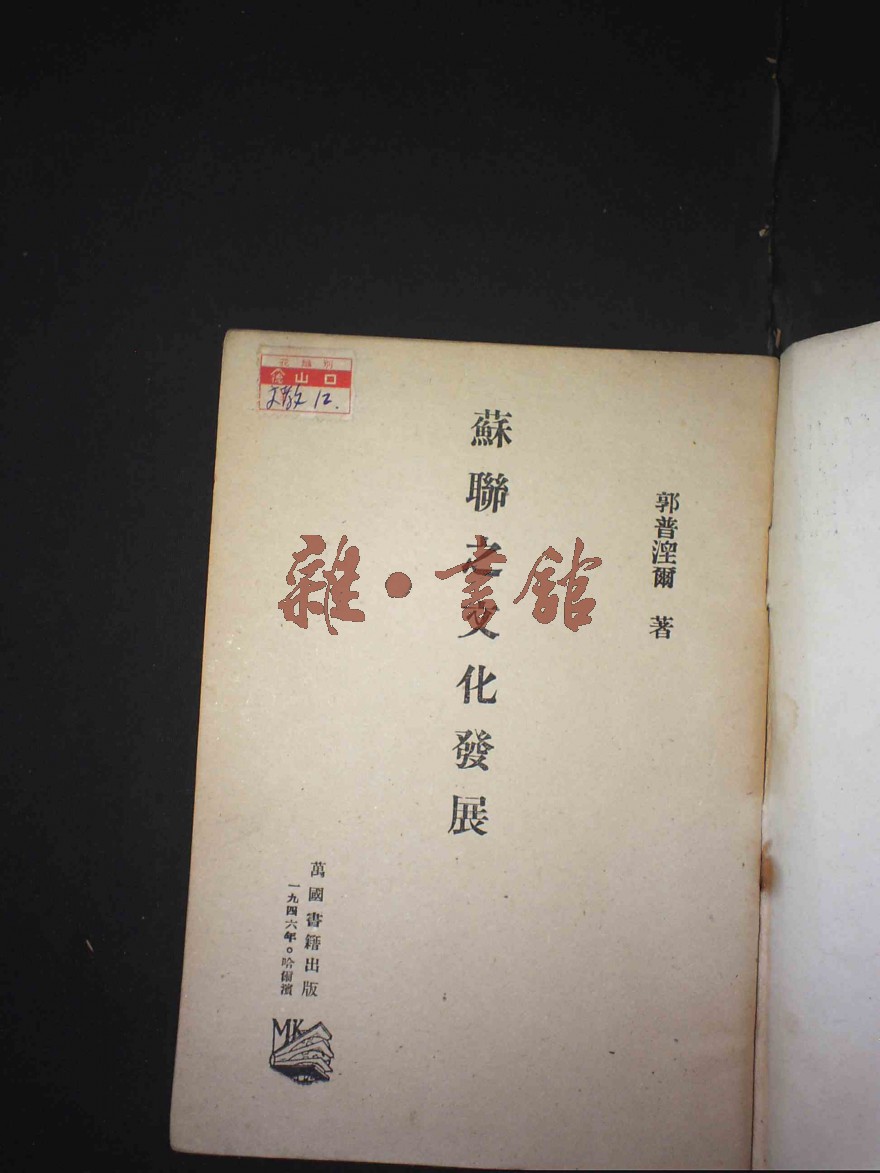 郭普湼爾 著
蘇聯之文化發展
萬國書籍出版
一九四六年。哈爾濱
MK
山口
12.
雜·書館